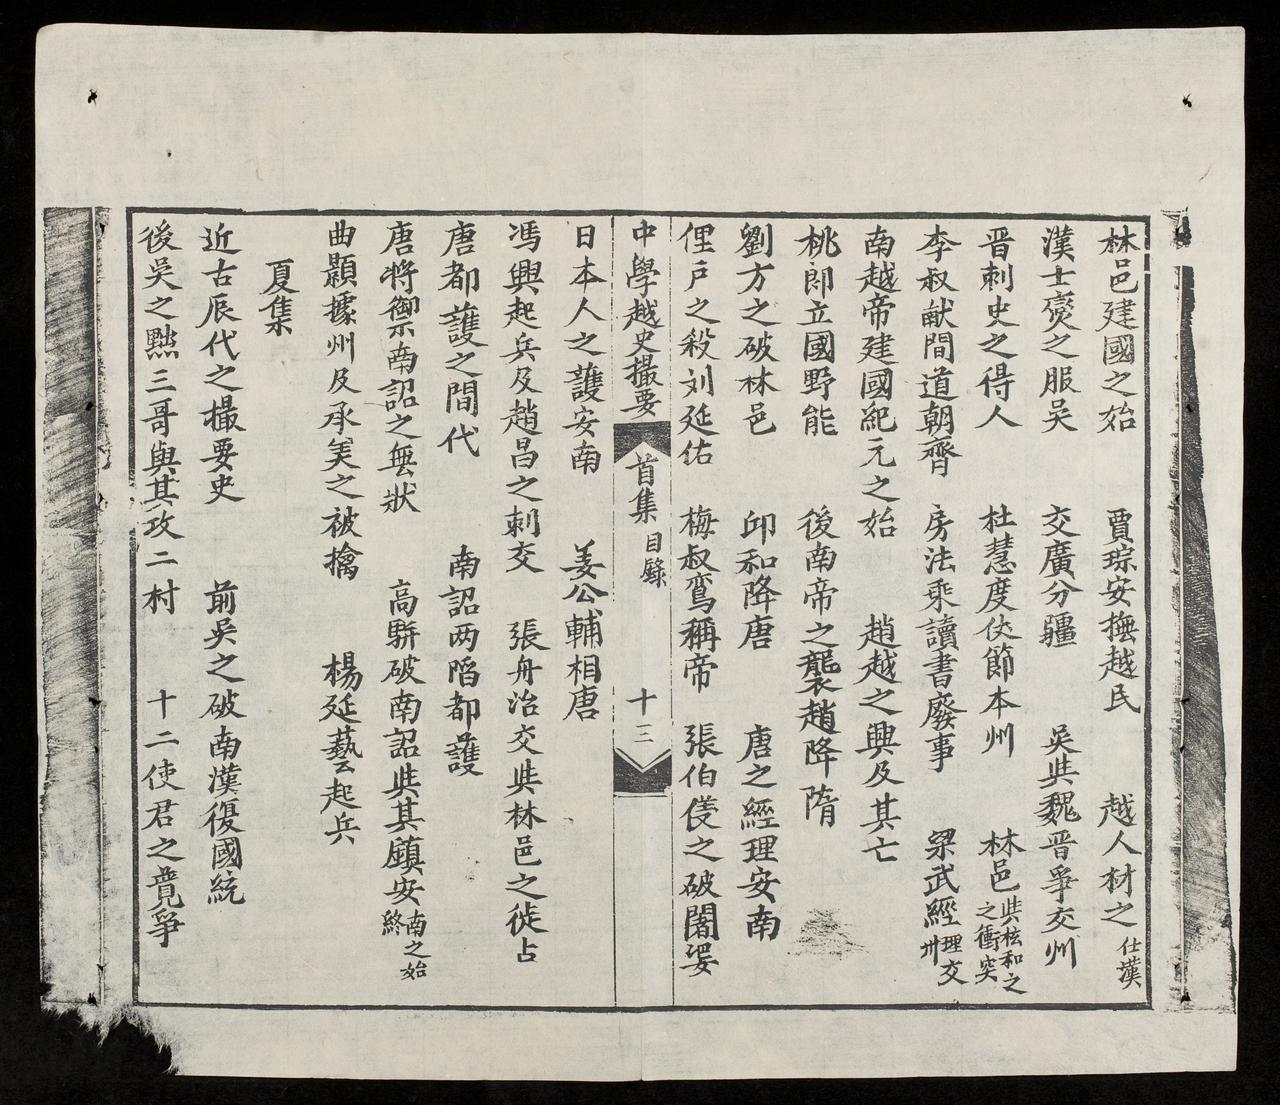 林邑建國之始　賈琮安撫越民　越人材之仕漢
漢士燮之服吴　交廣分疆　吴與魏晋爭交州
晋刺史之得人　杜慧度使節本州　林邑與桉和之之衝突
李叔献間道朝齊　房法乘讀書廢事　梁武經理交州
南越帝建國紀元之始　趙越之興及其亡
桃郎立國野能　後南帝之襲趙降隋
劉方之破林邑　邱和降唐　唐之經理安南
俚戸之殺刘延佑　梅叔鸞稱帝　張伯儀之破闍婆
中學越史撮要　首集目錄　十三
日本人之護安南　姜公輔相唐
馮興起兵及趙昌之刺交　張舟治交與林邑之徙占
唐都護之間代　南詔两陷都護
唐将禦南詔之無狀　高駢破南詔與其鎮安南之始終
曲顥據州及承美之被擒　楊延藝起兵
夏集
近古辰代之撮要史　前吴之破南漢復國統
後吴之黜三哥與其攻二村　十二使君之竟爭